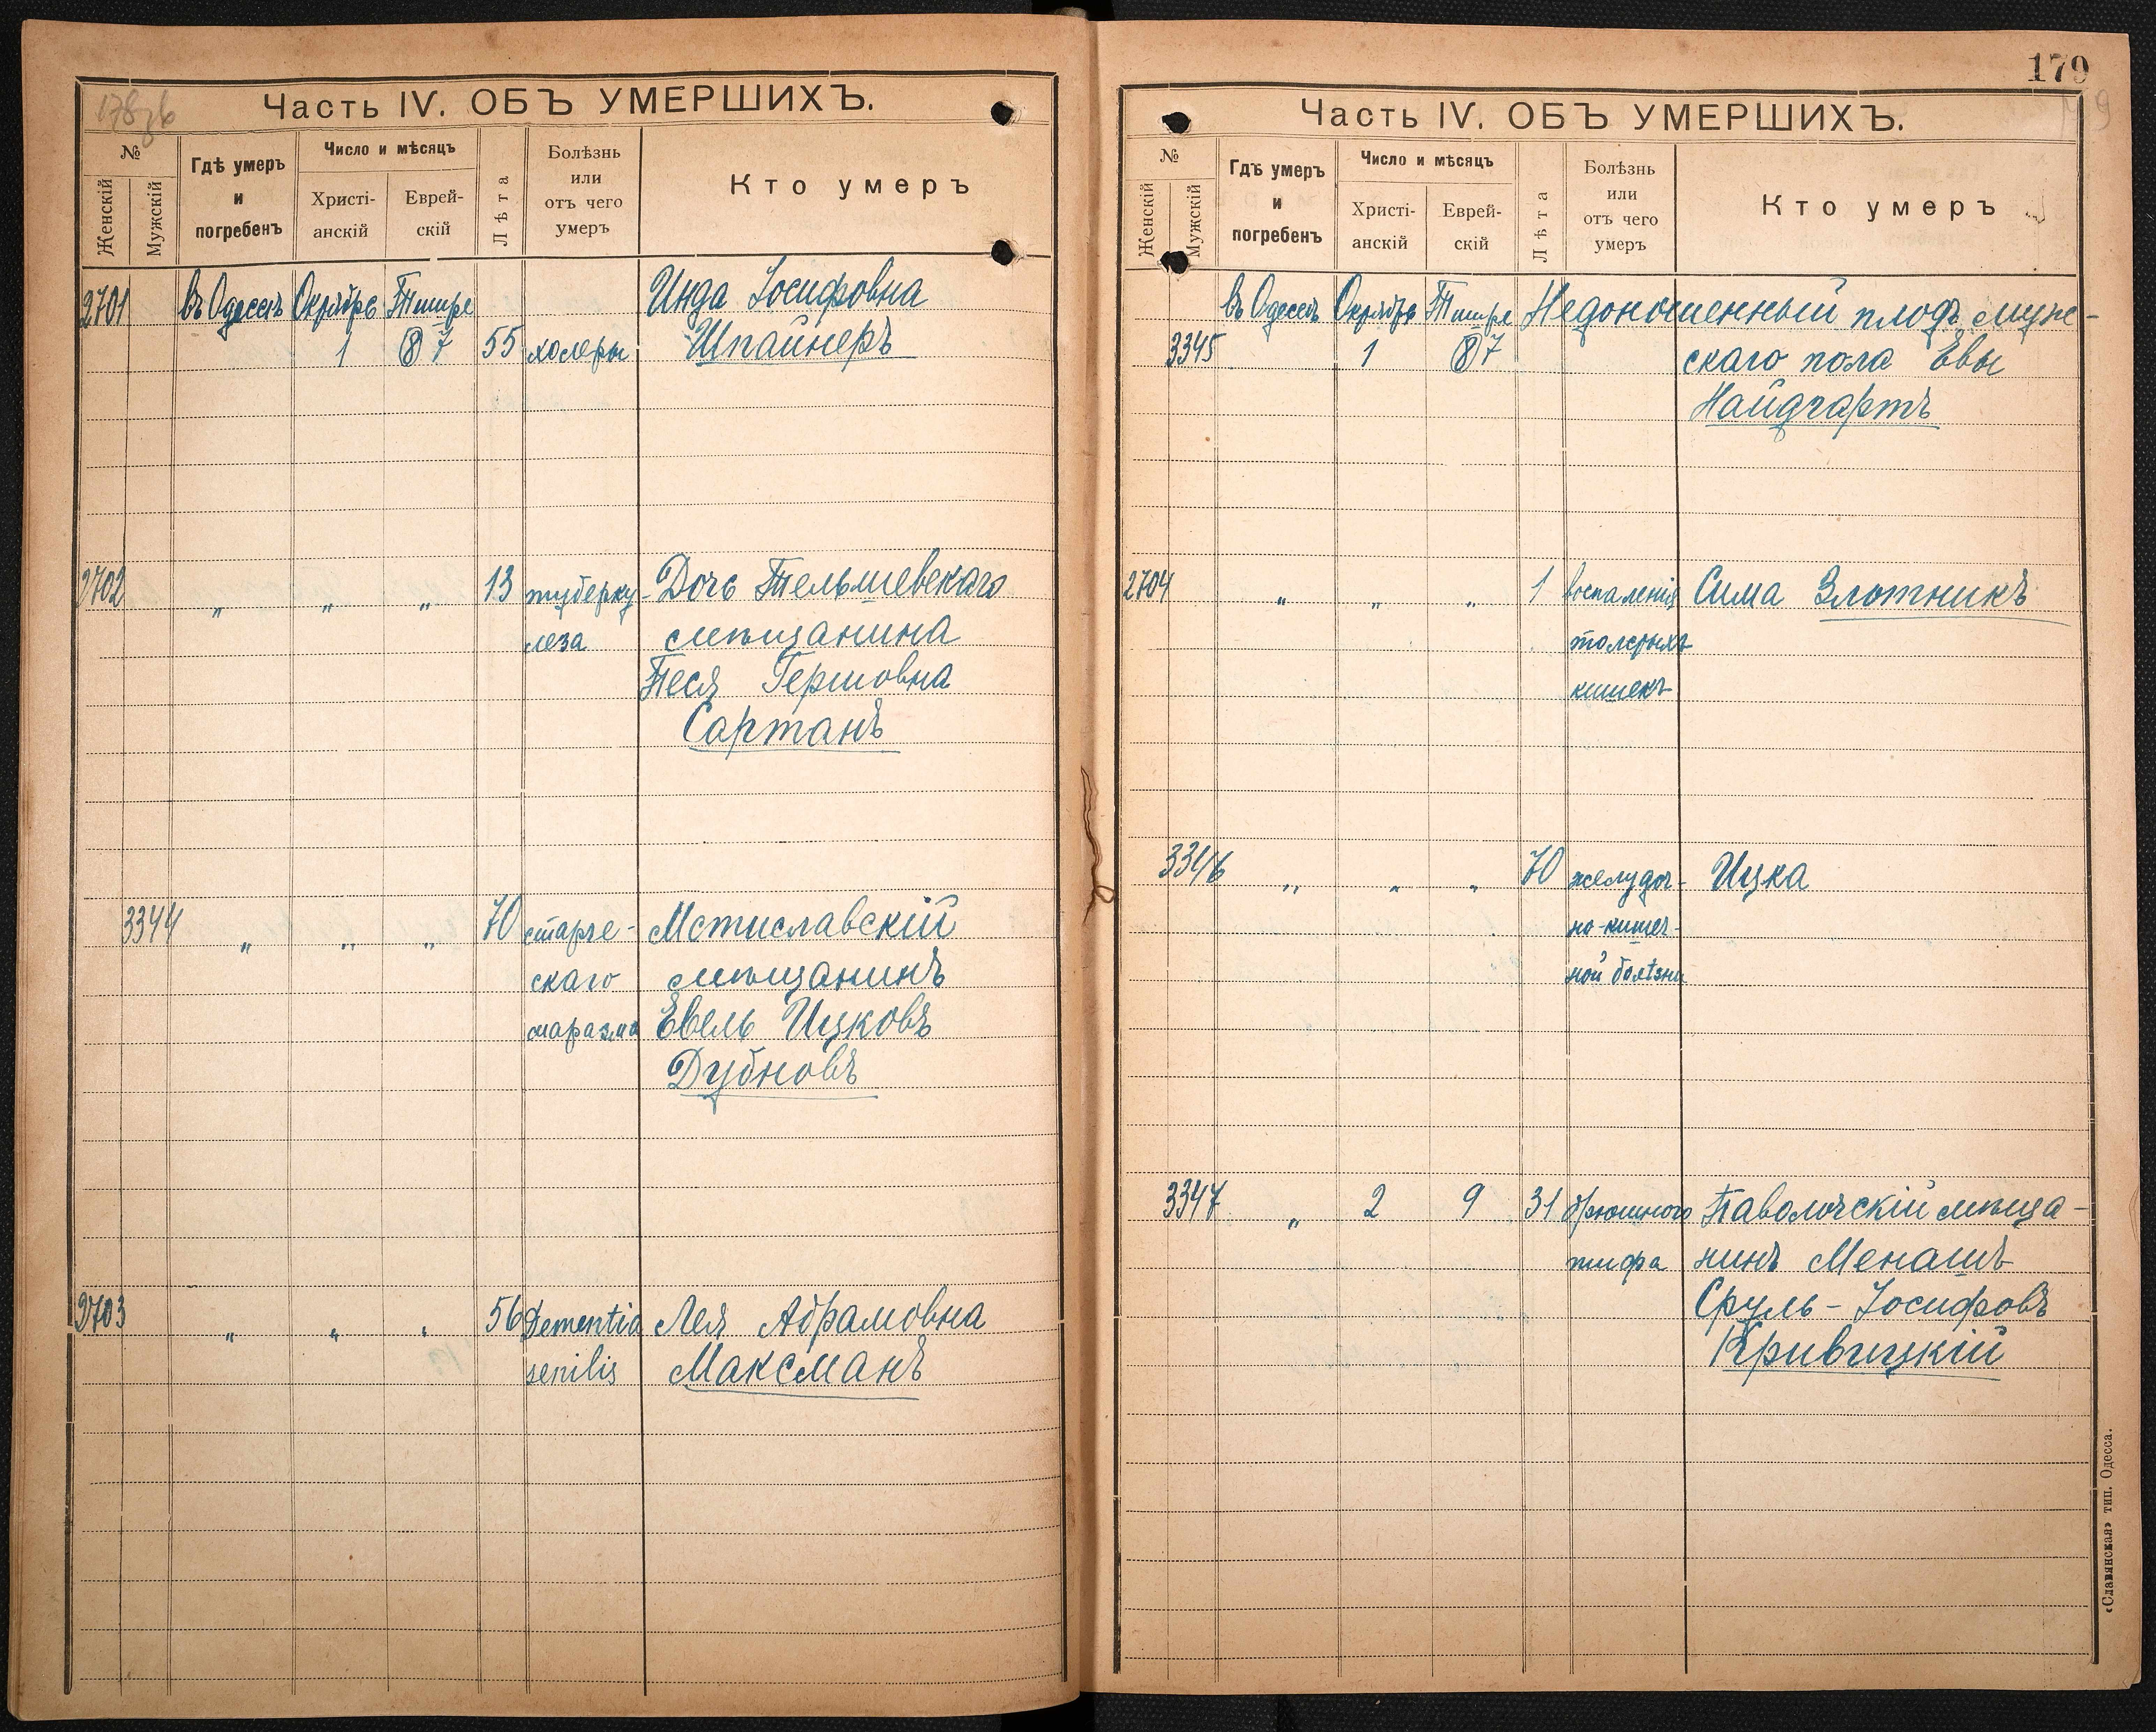 178зв
Часть IV. ОБЪ УМЕРШИХЪ.
№
Женскій
Мужскій
Гдѣ умеръ
и
погребенъ
Число и мѣсяцъ
Христі-
анскій
Еврей-
скій
Лѣта
Болѣзнь
или
отъ чего
умеръ
Кто умеръ
2701 въ Одессѣ Октябрь Тишре Инда Іосифовна
1 (8) 7 55 холеры Шпайнеръ
2702 " " " 13 туберку- Дочь Тельшевскаго
леза мѣщанина
Теся Гершовна
Сартанъ
3344 " " " 70 старче- Мстиславскій
скаго мѣщанинъ
маразма Евель Ицковъ
Дубновъ
2703 " " " 56 Dementia Лея Абрамовна
senilis Максманъ
179
Часть IV. ОБЪ УМЕРШИХЪ.
№
Женскій
Мужскій
Гдѣ умеръ
и
погребенъ
Число и мѣсяцъ
Христі-
анскій
Еврей-
скій
Лѣта
Болѣзнь
или
отъ чего
умеръ
Кто умеръ
въ Одессѣ Октябрь Тишре Недоношенный плодъ муж-
3345 1 (8) 7 скаго пола Евы
Найдгартъ
2704 " " " 1 воспаленія Сима Злотникъ
толстыхъ
кишекъ
3346 " " " 70 желудоч- Ицка
но-кишеч-
ной болѣзни
3347 " 2 9 31 брюшного Паволочскій мѣща-
тифа нинъ Менашъ
Сруль-Іосифовъ
Кривицкій
«Славянская» тип. Одесса.